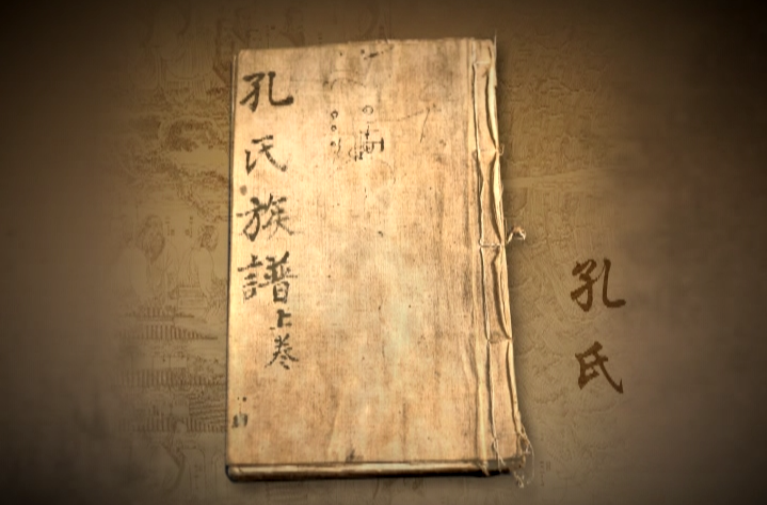 孔氏族譜
上卷
孔氏